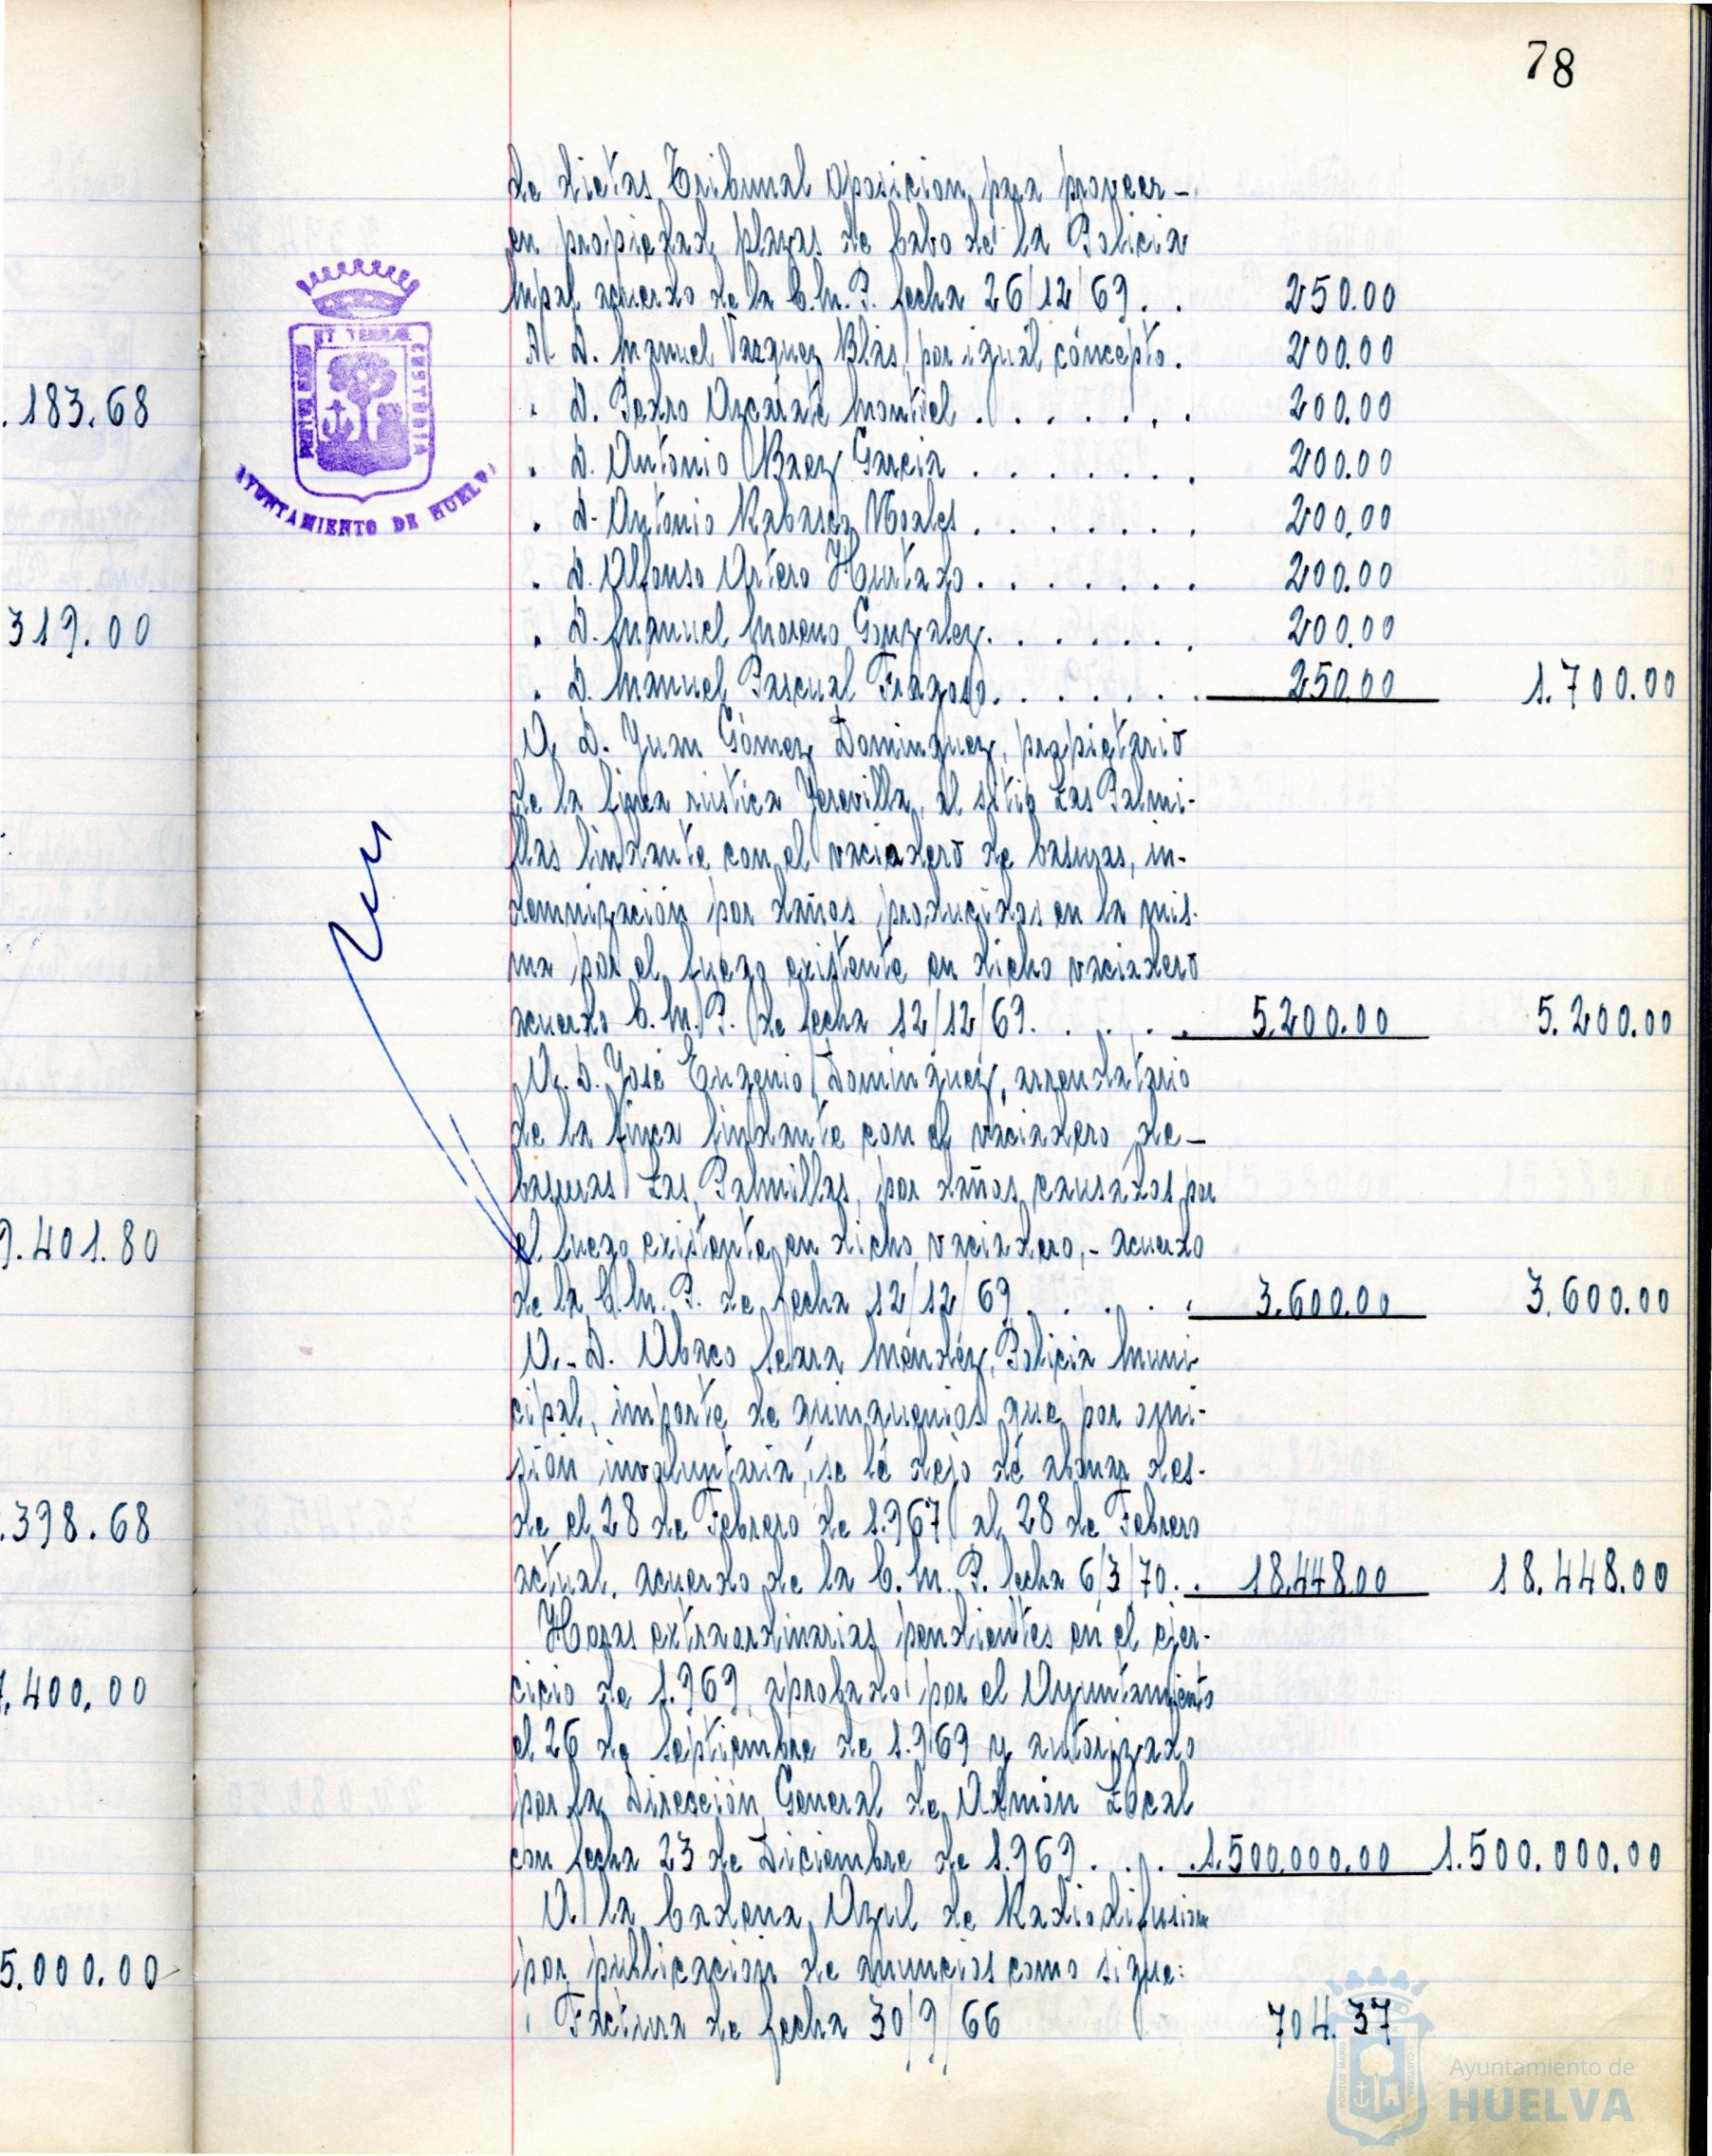 78
de dietas Tribunal oposicion para proveer-
en propiedad plazas de Cabo de la Policia
Mpal acuerdo de la C.M.P. fecha 26/12/69. . 250.00
A D. Manuel Vazquez Blas, por igual cóncepto. 200.00
" D. Pedro Azcárate Montiel . . . . . . . 200.00
" D. Antonio Baez Garcia . . . . . . . 200.00
" D. Antonio Rabasca Noales . . . . . . . 200.00
" D. Alfonso Artero Hurtado . . . . . . . 200.00
" D. Manuel Moreno Gonzalez . . . . . . . 200.00
" D. Manuel Pascual Fragoso . . . . . . . 250.00 1.700.00
A D. Juan Gómez Dominguez, propietario
de la finca rústica Jerevilla, al sitio Las Palmi-
llas lindante con el vaciadero de basuras, in-
demnización por daños producidos en la mis-
ma por el fuego existente en dicho vaciadero
acuerdo C.M.P. de fecha 12/12/69. . . . . 5.200.00 5.200.00
A. D. José Eugenio Dominguez, arrendatario
de la finca lindante con el vaciadero de-
basuras Las Palmillas, por daños causados por
el fuego existente en dicho vaciadero,- acuerdo
de la C.M.P. de fecha 12/12/69 . . . . . 3.600.00 3.600.00
A.- D. Abaco Seara Méndez, Policia Muni
cipal, importe de quinquenios que por omi-
sión involuntaria, se le dejó de abonar des-
de el 28 de Febrero de 1.967 al 28 de Febrero
actual. acuerdo de la C.M.P. fecha 6/3/70. . 18.448.00 18.448.00
Horas extraordinarias pendientes en el ejer-
cicio de 1.969, aprobado por el Ayuntamiento
el 26 de Septiembre de 1.969 y autorizado
por la Dirección General de Admón Local
con fecha 23 de Diciembre de 1.969 . . . . 1.500.000.00 1.500.000.00
A la Cadena Azul de Radiodifusion
por publicación de anuncios como sigue:
Factura de fecha 30/9/66 704.37
.183.68
319.00
9.401.80
.398.68
.400.00
5.000.00
PORTUS MARIS ET TERRAE CUSTODIA
AYUNTAMIENTO DE HUELVA
Ayuntamiento de
HUELVA